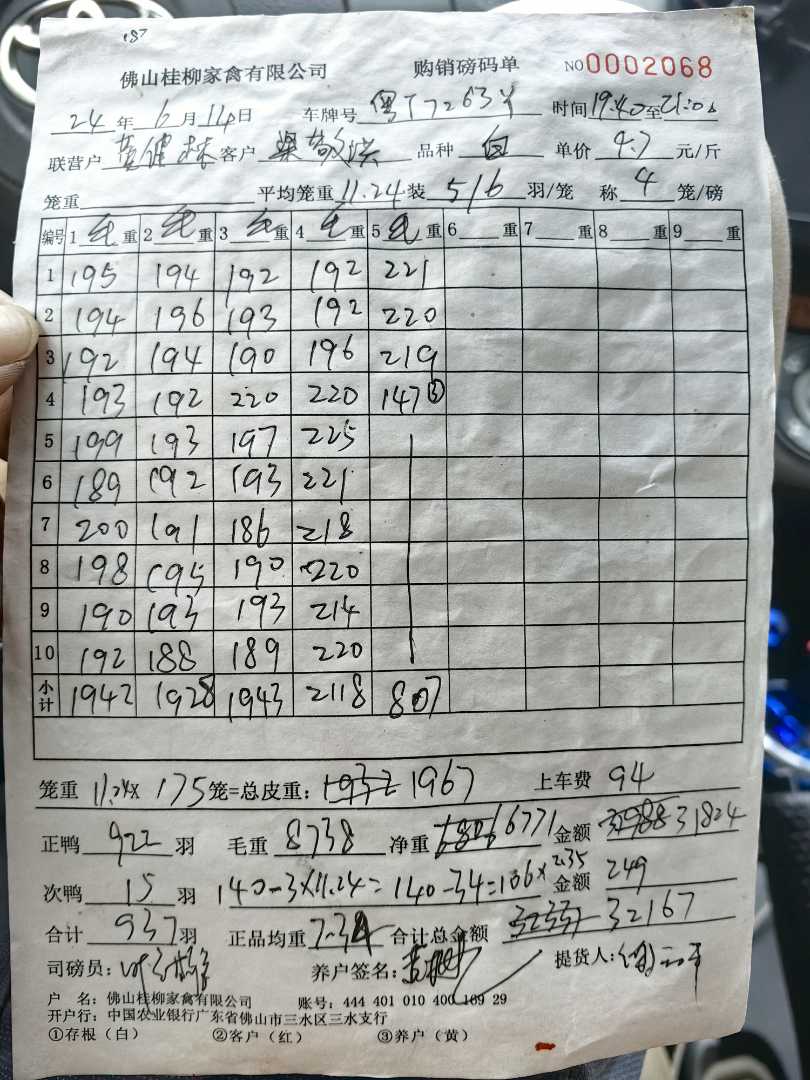 187
佛山桂柳家禽有限公司 购销磅码单 NO 0002068
24年6月14日 车牌号 粤T7263 时间19:40至21:0
联营户 黄健林 客户 梁 洪 品种 白 单价 4.7 元/斤
笼重 平均笼重 11.24 装 5/6 羽/笼 称 4 笼/磅
编号 1 毛 重 2 毛 重 3 毛 重 4 毛 重 5 毛 重 6 重 7 重 8 重 9 重
1 195 194 192 192 221
2 194 196 193 192 220
3 192 194 190 196 219
4 193 192 220 220 147③
5 199 193 197 225
6 189 192 193 221
7 200 191 186 218
8 198 195 190 220
9 190 193 193 214
10 192 188 189 220
小计 1942 1928 1943 2118 807
笼重 11.24× 175 笼=总皮重: 1932 1967 上车费 94
正鸭 922 羽 毛重 8738 净重 6806 6771 金额 31988 31824
次鸭 15 羽 140-3×11.24= 140-34=106×2.35 金额 249
合计 937 羽 正品均重 7.34 合计总金额 32331 32167
司磅员: 养户签名: 提货人:
户 名: 佛山桂柳家禽有限公司 账号: 444 401 010 400 169 29
开户行: 中国农业银行广东省佛山市三水区三水支行
①存根(白) ②客户(红) ③养户(黄)